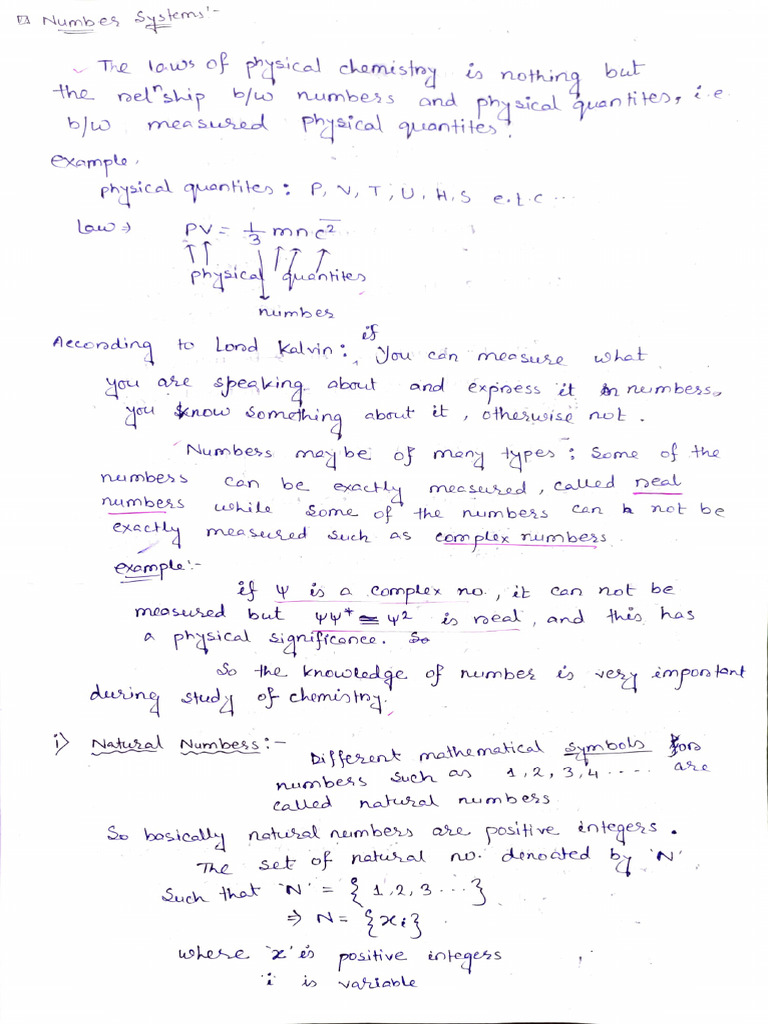 Number Systems:-
The laws of physical chemistry is nothing but
the relⁿship b/w numbers and physical quantites, i.e
b/w measured physical quantites.
example.
physical quantites: P, V, T, U, H, S e.t.c ...
Law ⇒ PV = 1/3 mn c̅²
physical quantites
number
According to Lord Kalvin: if you can measure what
you are speaking about and express it in numbers,
you know something about it, otherwise not.
Numbers maybe of many types; some of the
numbers can be exactly measured, called real
numbers while some of the numbers can not be
exactly measured such as complex numbers.
example:-
if ψ is a complex no., it can not be
measured but ψψ* = ψ² is real, and this has
a physical significance. So
So the knowledge of number is very important
during study of chemistry.
i) Natural Numbers:-
Different mathematical symbols for
numbers such as 1, 2, 3, 4 ..... are
called natural numbers
So basically natural numbers are positive integers.
The set of natural no. denoated by 'N'
such that 'N' = {1, 2, 3 ...}
⇒ N = {xi}
where 'x' is positive integers
'i' is variable